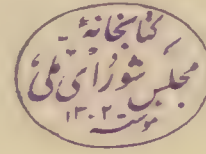 کتابخانهٔ
مجلس شورای ملی
مؤسسه
۱۳۰۲